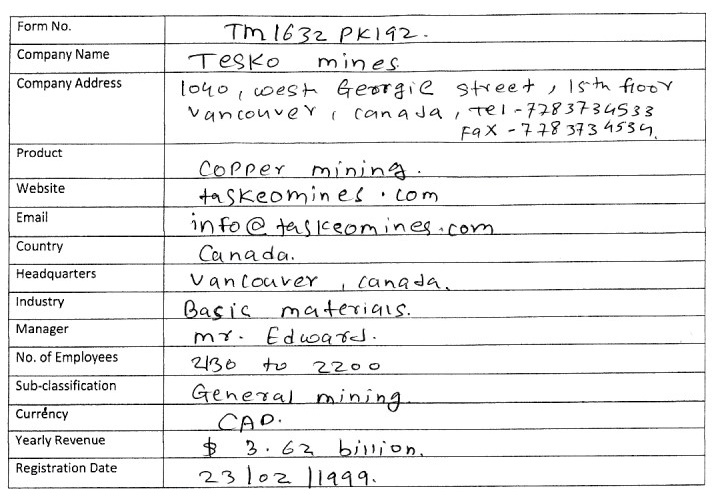 Form No. TM1632 PK192.
Company Name Tesko mines
Company Address 1040, west Georgie street, 15th floor
vancouver, canada, Tel-7783734533
Fax-7783734534.
Product Copper mining.
Website taskeomines.com
Email info@taskeomines.com
Country Canada.
Headquarters vancouver, canada.
Industry Basic materials.
Manager mr. Edward.
No. of Employees 2130 to 2200
Sub-classification General mining
Currency CAD.
Yearly Revenue $ 3.62 billion.
Registration Date 23/02/1999.